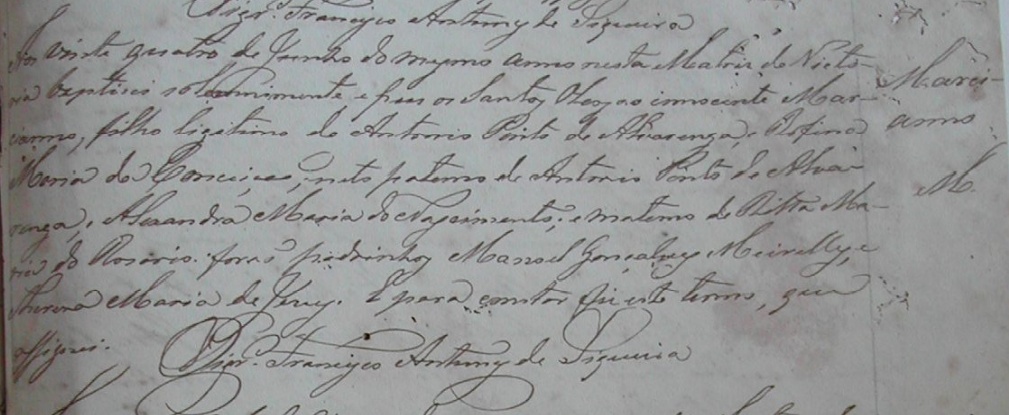 Vigr.o Francisco Antunes de Siqueira
Aos vinte quatro de Junho do mesmo anno nesta Matriz de Victo-
ria baptisei solemnimente e pus os Santos Oleos ao innocente Mar-
cianno, filho legitimo de Antonio Pinto de Alvarenga, e Rofina
Maria da Conceição, neto paterno de Antonio Pinto de Alva-
renga, e Alexandra Maria do Nascimento, e materno de Ritta Ma-
ria do Rosario. forão padrinhos Manoel Gonçalves Meirelles, e
Maria de Jesus. E para constar fiz este termo, que
assignei.
Vigr.o Francisco Antunes de Siqueira
Marci-
anno
M.